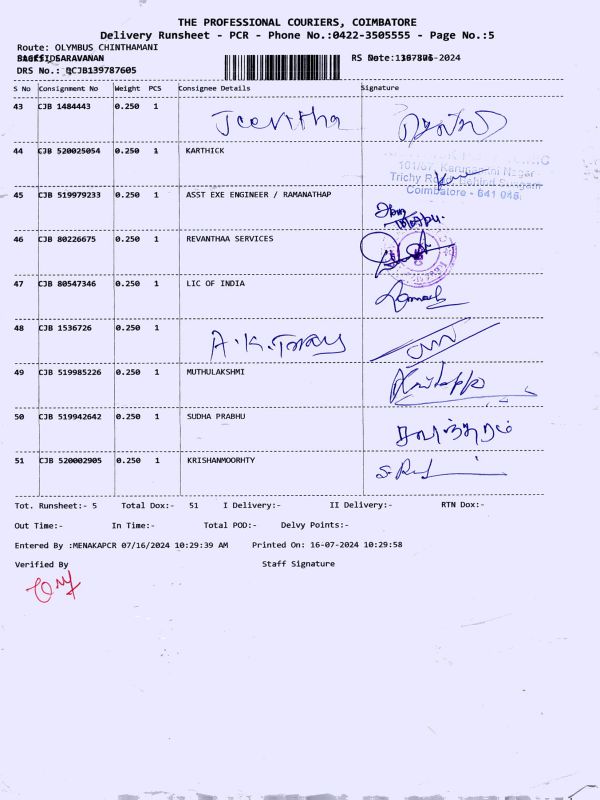 THE PROFESSIONAL COURIERS, COIMBATORE
Delivery Runsheet - PCR - Phone No.:0422-3505555 - Page No.:5
Route: OLYMBUS CHINTHAMANI
RS Date: -2024
DRS No.: QCJB139787605
S No Consignment No Weight PCS Consignee Details Signature
43 CJB 1484443 0.250 1 Jeevitha
44 CJB 520025054 0.250 1 KARTHICK
Trichy Road, Behind Sungam
Coimbatore - 641 045.
45 CJB 519979233 0.250 1 ASST EXE ENGINEER / RAMANATHAP
46 CJB 80226675 0.250 1 REVANTHAA SERVICES
47 CJB 80547346 0.250 1 LIC OF INDIA
48 CJB 1536726 0.250 1 A.K.
49 CJB 519985226 0.250 1 MUTHULAKSHMI
50 CJB 519942642 0.250 1 SUDHA PRABHU
51 CJB 520002905 0.250 1 KRISHANMOORHTY
Tot. Runsheet:- 5 Total Dox:- 51 I Delivery:- II Delivery:- RTN Dox:-
Out Time:- In Time:- Total POD:- Delvy Points:-
Entered By :MENAKAPCR 07/16/2024 10:29:39 AM Printed On: 16-07-2024 10:29:58
Verified By Staff Signature